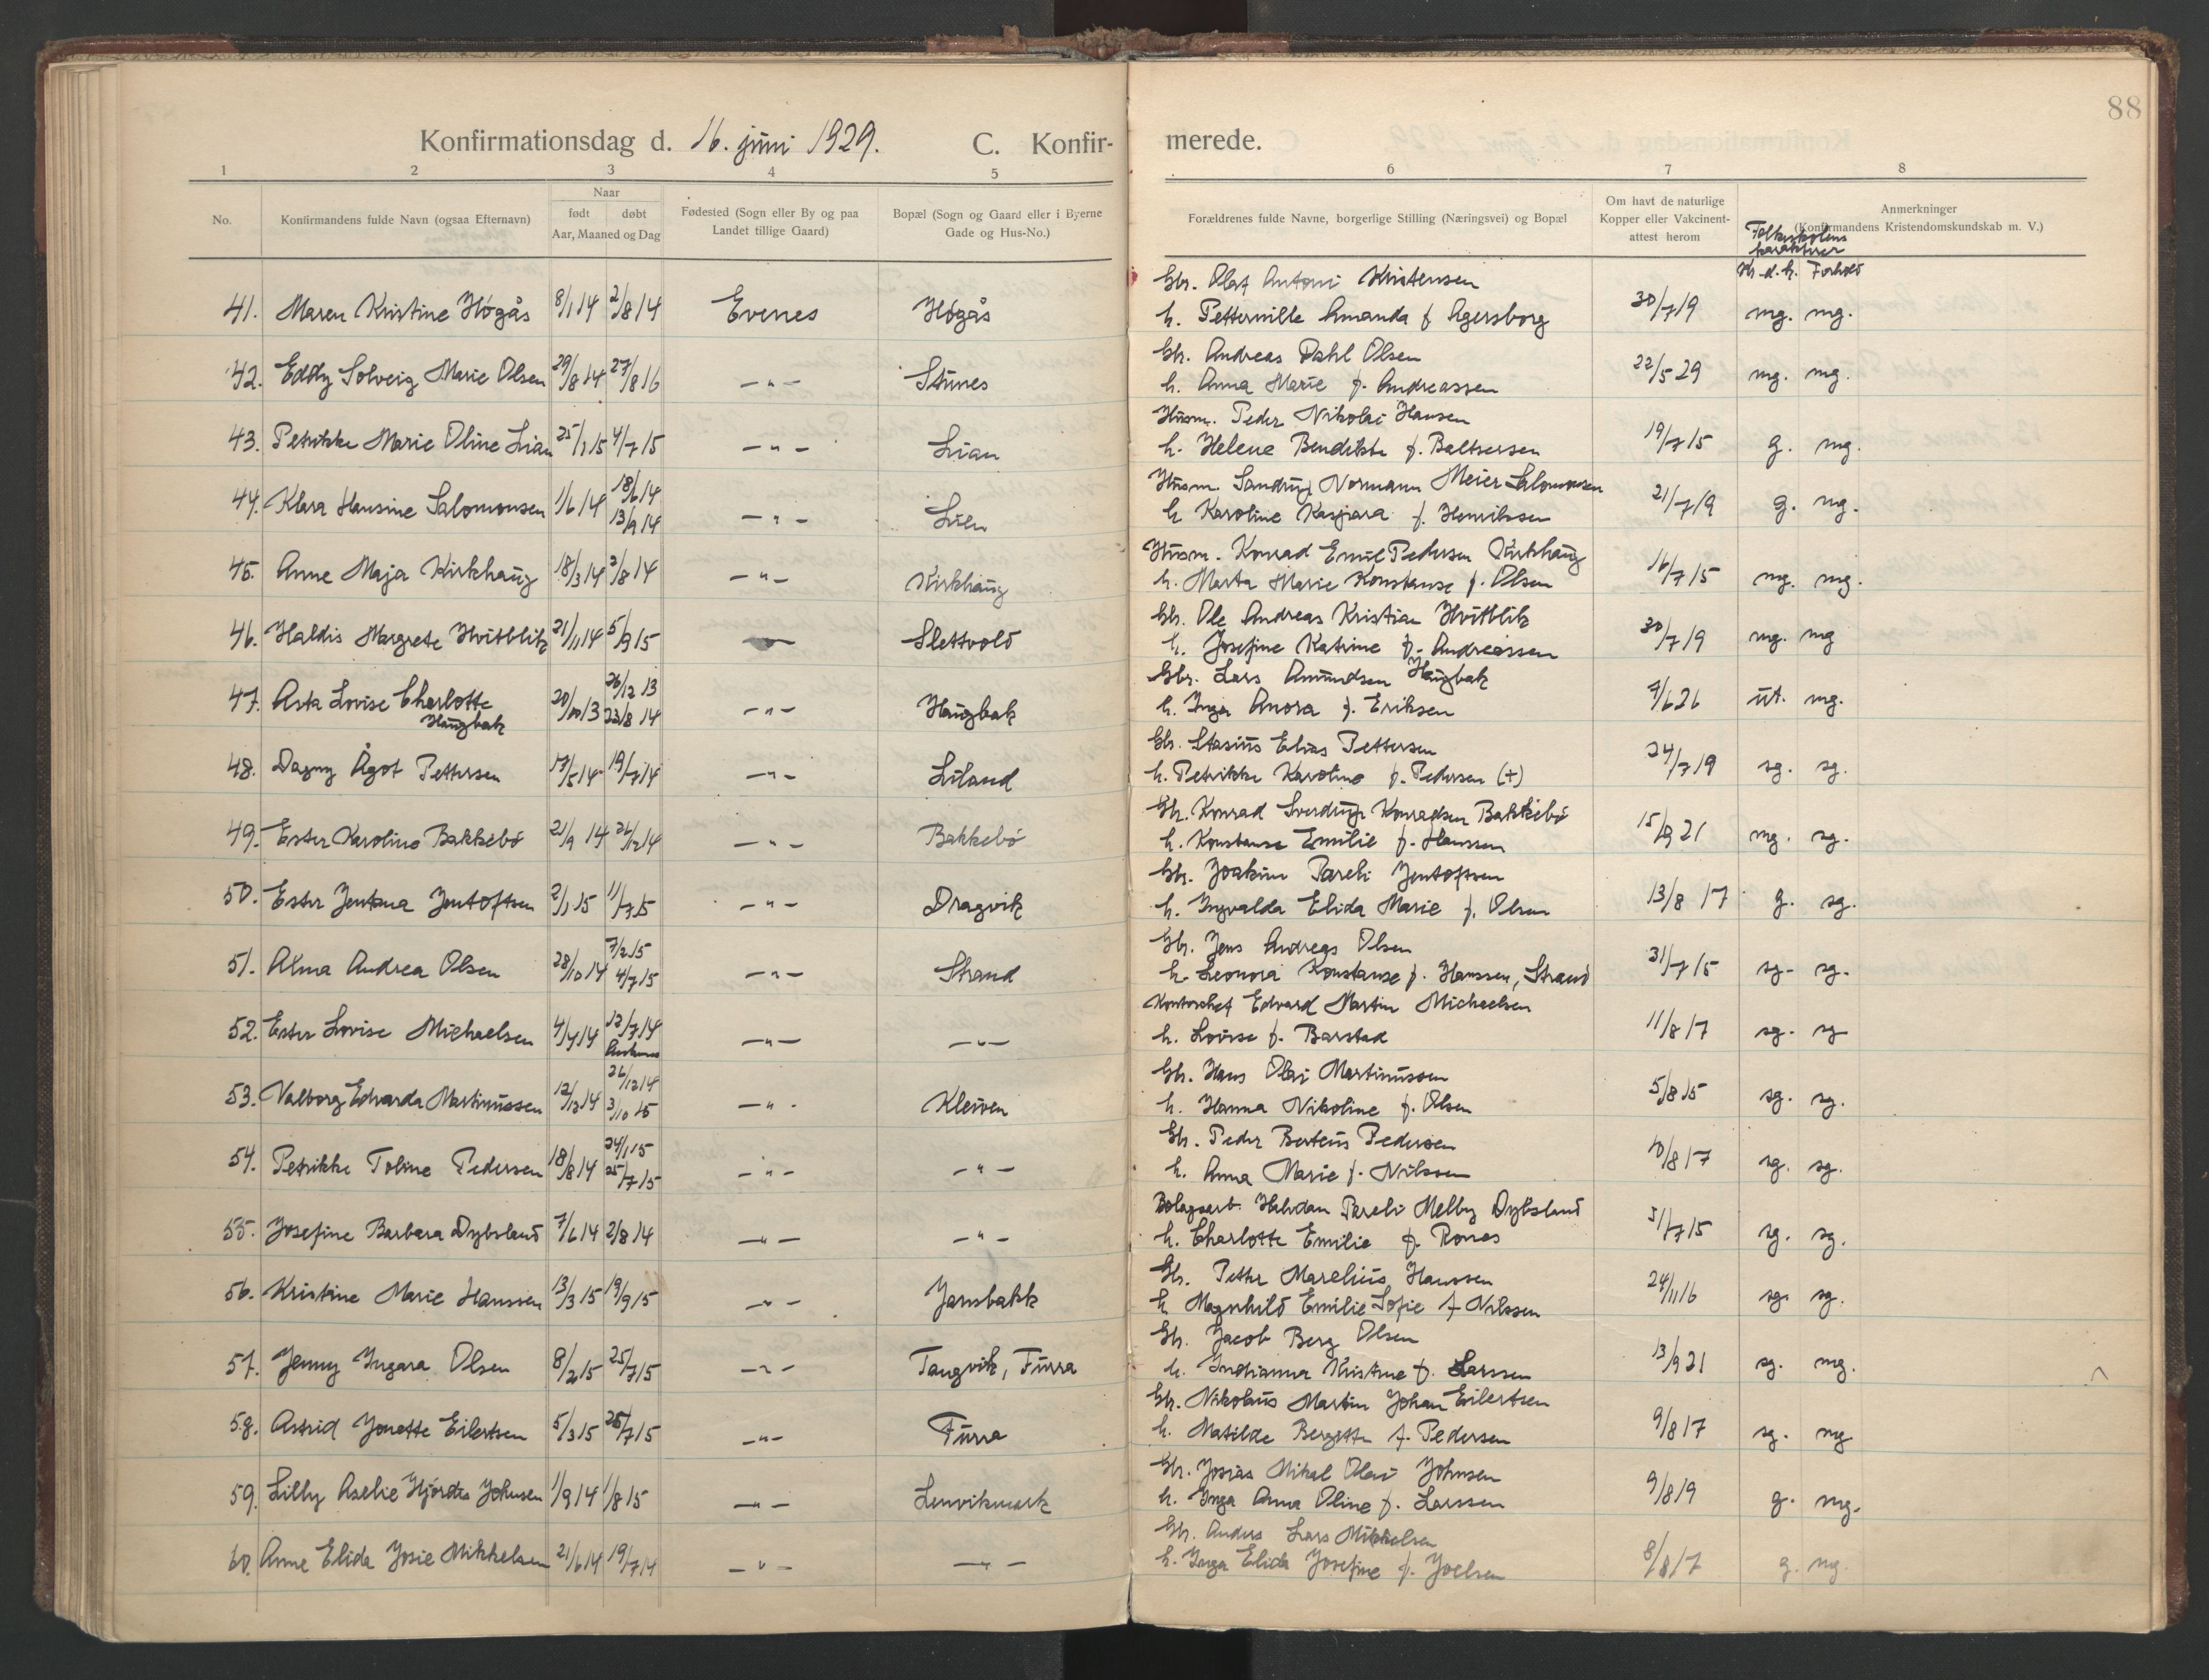 88
Konfirmationsdag d. 16. juni 1929. C. Konfir- merede.
1 2 3 4 5 6 7 8
No. Konfirmandens fulde Navn (ogsaa Efternavn) Naar født døbt Aar, Maaned og Dag Fødested (Sogn eller By og paa Landet tillige Gaard) Bopæl (Sogn og Gaard eller i Byerne Gade og Hus-No.) Forældrenes fulde Navne, borgerlige Stilling (Næringsvei) og Bopæl Om havt de naturlige Kopper eller Vakcinent- attest herom Anmerkninger (Konfirmandens Kristendomskundskab m. V.)
Folkeskolens karakterer
Kr.d.k. Forhold
Gbr. Olaf Antoni Kristensen
41. Maren Kristine Høgås 8/1 14 2/8 14 Evenes Høgås h. Petternille Amanda f. Agersborg 30/7 19 mg. mg.
Gbr. Andreas Dahl Olsen
42. Eddy Solveig Marie Olsen 29/8 14 27/8 16 –"– Stunes h. Anna Marie f. Andreassen 22/5 29 mg. mg.
Husm. Peder Nikolai Hansen
43. Petrikke Marie Oline Lian 25/1 15 4/7 15 –"– Lian h. Helene Bendikte f. Baltsersen 19/7 15 g. mg.
Husm. Sandrup Normann Meier Salomonsen
44. Klara Hansine Salomonsen 1/6 14 18/6 14 13/9 14 –"– Lien h. Karoline Kaspara f. Henriksen 21/7 19 g. mg.
Husm. Konrad Emil Pedersen Kirkhaug
45. Anne Maja Kirkhaug 18/3 14 2/8 14 –"– Kirkhaug h. Marta Marie Konstanse f. Olsen 16/7 15 mg. mg.
Gbr. Ole Andreas Kristian Hvitblik
46. Haldis Margrete Hvitblik 21/11 14 5/9 15 –"– Slettvold h. Josefine Katrine f. Andreassen 30/7 19 mg. mg
Gbr. Lars Amundsen Haugbak
47. Asta Lovise Charlotte Haugbak 20/10 13 26/12 13 23/8 14 –"– Haugbak h. Inga Anora f. Eriksen 7/6 26 ut. mg.
Gbr. Stasius Elias Pettersen
48. Dagny Ågot Pettersen 17/5 14 19/7 14 –"– Liland h. Petrikke Karoline f. Pedersen (+) 24/7 19 sg. sg.
Gbr. Konrad Sverdrup Konradsen Bakkebø
49. Ester Karoline Bakkebø 21/9 14 26/12 14 –"– Bakkebø h. Konstanse Emilie f. Hanssen 15/9 21 mg. sg.
Gbr. Joakim Pareli Jentoftsen
50. Ester Jentana Jentoftsen 2/1 15 11/7 15 –"– Dragvik h. Ingvalda Elida Marie f. Olsen 13/8 17 g. sg.
Gbr. Jens Andreas Olsen
51. Alma Andrea Olsen 28/10 14 7/2 15 4/7 15 –"– Strand h. Leonora Konstanse f. Hanssen, Strand 31/7 15 sg. sg.
Kontorchef Edvard Martin Michaelsen
52. Ester Lovise Michaelsen 4/4 14 12/7 14 –"– –"– h. Lovise f. Barstad 11/8 17 sg. sg
Gbr. Hans Olai Martinussen
53. Valborg Edvarda Martinussen 12/12 14 26/12 14 3/10 15 –"– Kleiven h. Hanna Nikoline f. Olsen 5/8 15 sg. sg.
Gbr. Peder Berteus Pedersen
54. Petrikke Toline Pedersen 18/8 14 24/1 15 25/7 15 –"– –"– h. Anna Marie f. Nilssen 10/8 17 sg. sg.
Bolagsarb. Halvdan Pareli Melby Dybsland
55. Josefine Barbara Dybsland 7/6 14 2/8 14 –"– –"– h. Charlotte Emilie f. Rones 31/7 15 sg. sg.
Gbr. Petter Marelius Hanssen
56. Kristine Marie Hanssen 13/3 15 19/9 15 –"– Jarsbakk h. Magnhild Emilie Sofie f. Nilssen 24/11 16 sg. sg.
Gbr. Jacob Berg Olsen
57. Jenny Ingara Olsen 8/2 15 25/7 15 –"– Tangvik, Furra h. Indianna Kristine f. Larssen 13/9 21 sg. mg.
Gbr. Nikolaus Martin Johan Eilertsen
58. Astrid Jonette Eilertsen 5/3 15 25/7 15 –"– Furra h. Matilde Bergitte f. Pedersen 9/8 17 sg. mg
Gbr. Josias Mikal Olai Johnsen
59. Lilly Aselie Hjørdis Johnsen 1/9 14 1/8 15 –"– Lenvikmark h. Inga Anna Oline f. Larssen 9/8 19 g. mg.
Gbr. Anders Lars Mikkelsen
60. Anne Elida Josie Mikkelsen 21/6 14 19/7 14 –"– –"– h. Inga Elida Josefine f. Joelsen 8/8 17 g. mg.